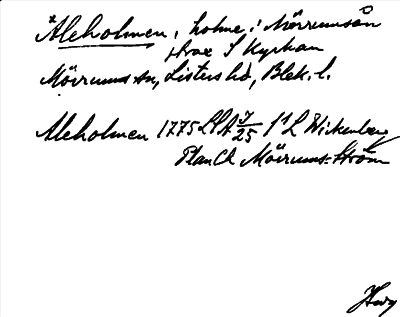 *Aleholmen, holme i Mörrumsån
strax S Kyrkan
Mörrums sn, Listers hd, Blek. l.
Aleholmen 1775 LSA J/25 1¹ L Wikenberg
Plan Ch Mörrums-Ström